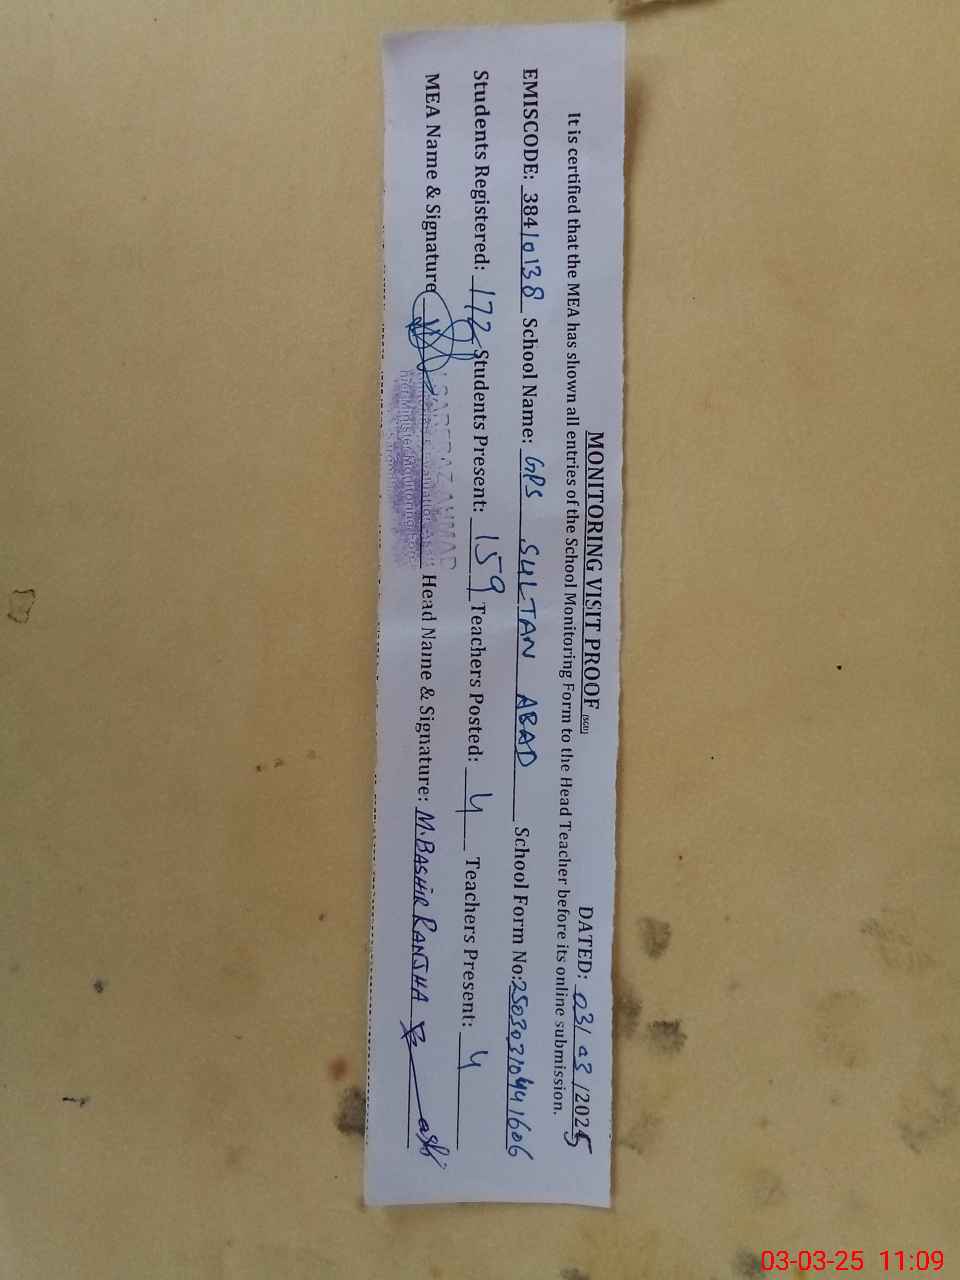 MONITORING VISIT PROOF (SGD) DATED: 03/ 03 /2025
It is certified that the MEA has shown all entries of the School Monitoring Form to the Head Teacher before its online submission.
EMISCODE: 38410138 School Name: GPS SULTAN ABAD School Form No:
Students Registered: 172 Students Present: 159 Teachers Posted: 4 Teachers Present: 4
MEA Name & Signature Head Name & Signature: M.BASHIR RANJHA
AHMAD
03-03-25 11:09